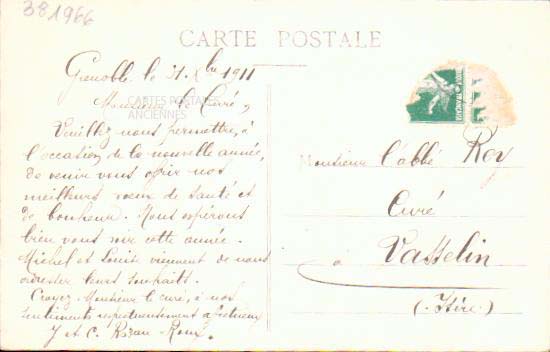 381966
CARTE POSTALE
Grenoble le 31 Xbre 1911
Monsieur le Curé,
CARTES POSTALES
ANCIENNES
Veuillez nous permettre, à
l'occasion de la nouvelle année,
de venir vous offrir nos
meilleurs vœux de santé et
de bonheur. Nous espérons
bien vous voir cette année.
Michel et Louis viennent de nous
adresser leurs souhaits.
Croyez Monsieur le curé, à nos
sentiments respectueusement affectueux
J. et C. Roux.
Monsieur l'abbé Rey
Curé
à Vasselin
(Isère)